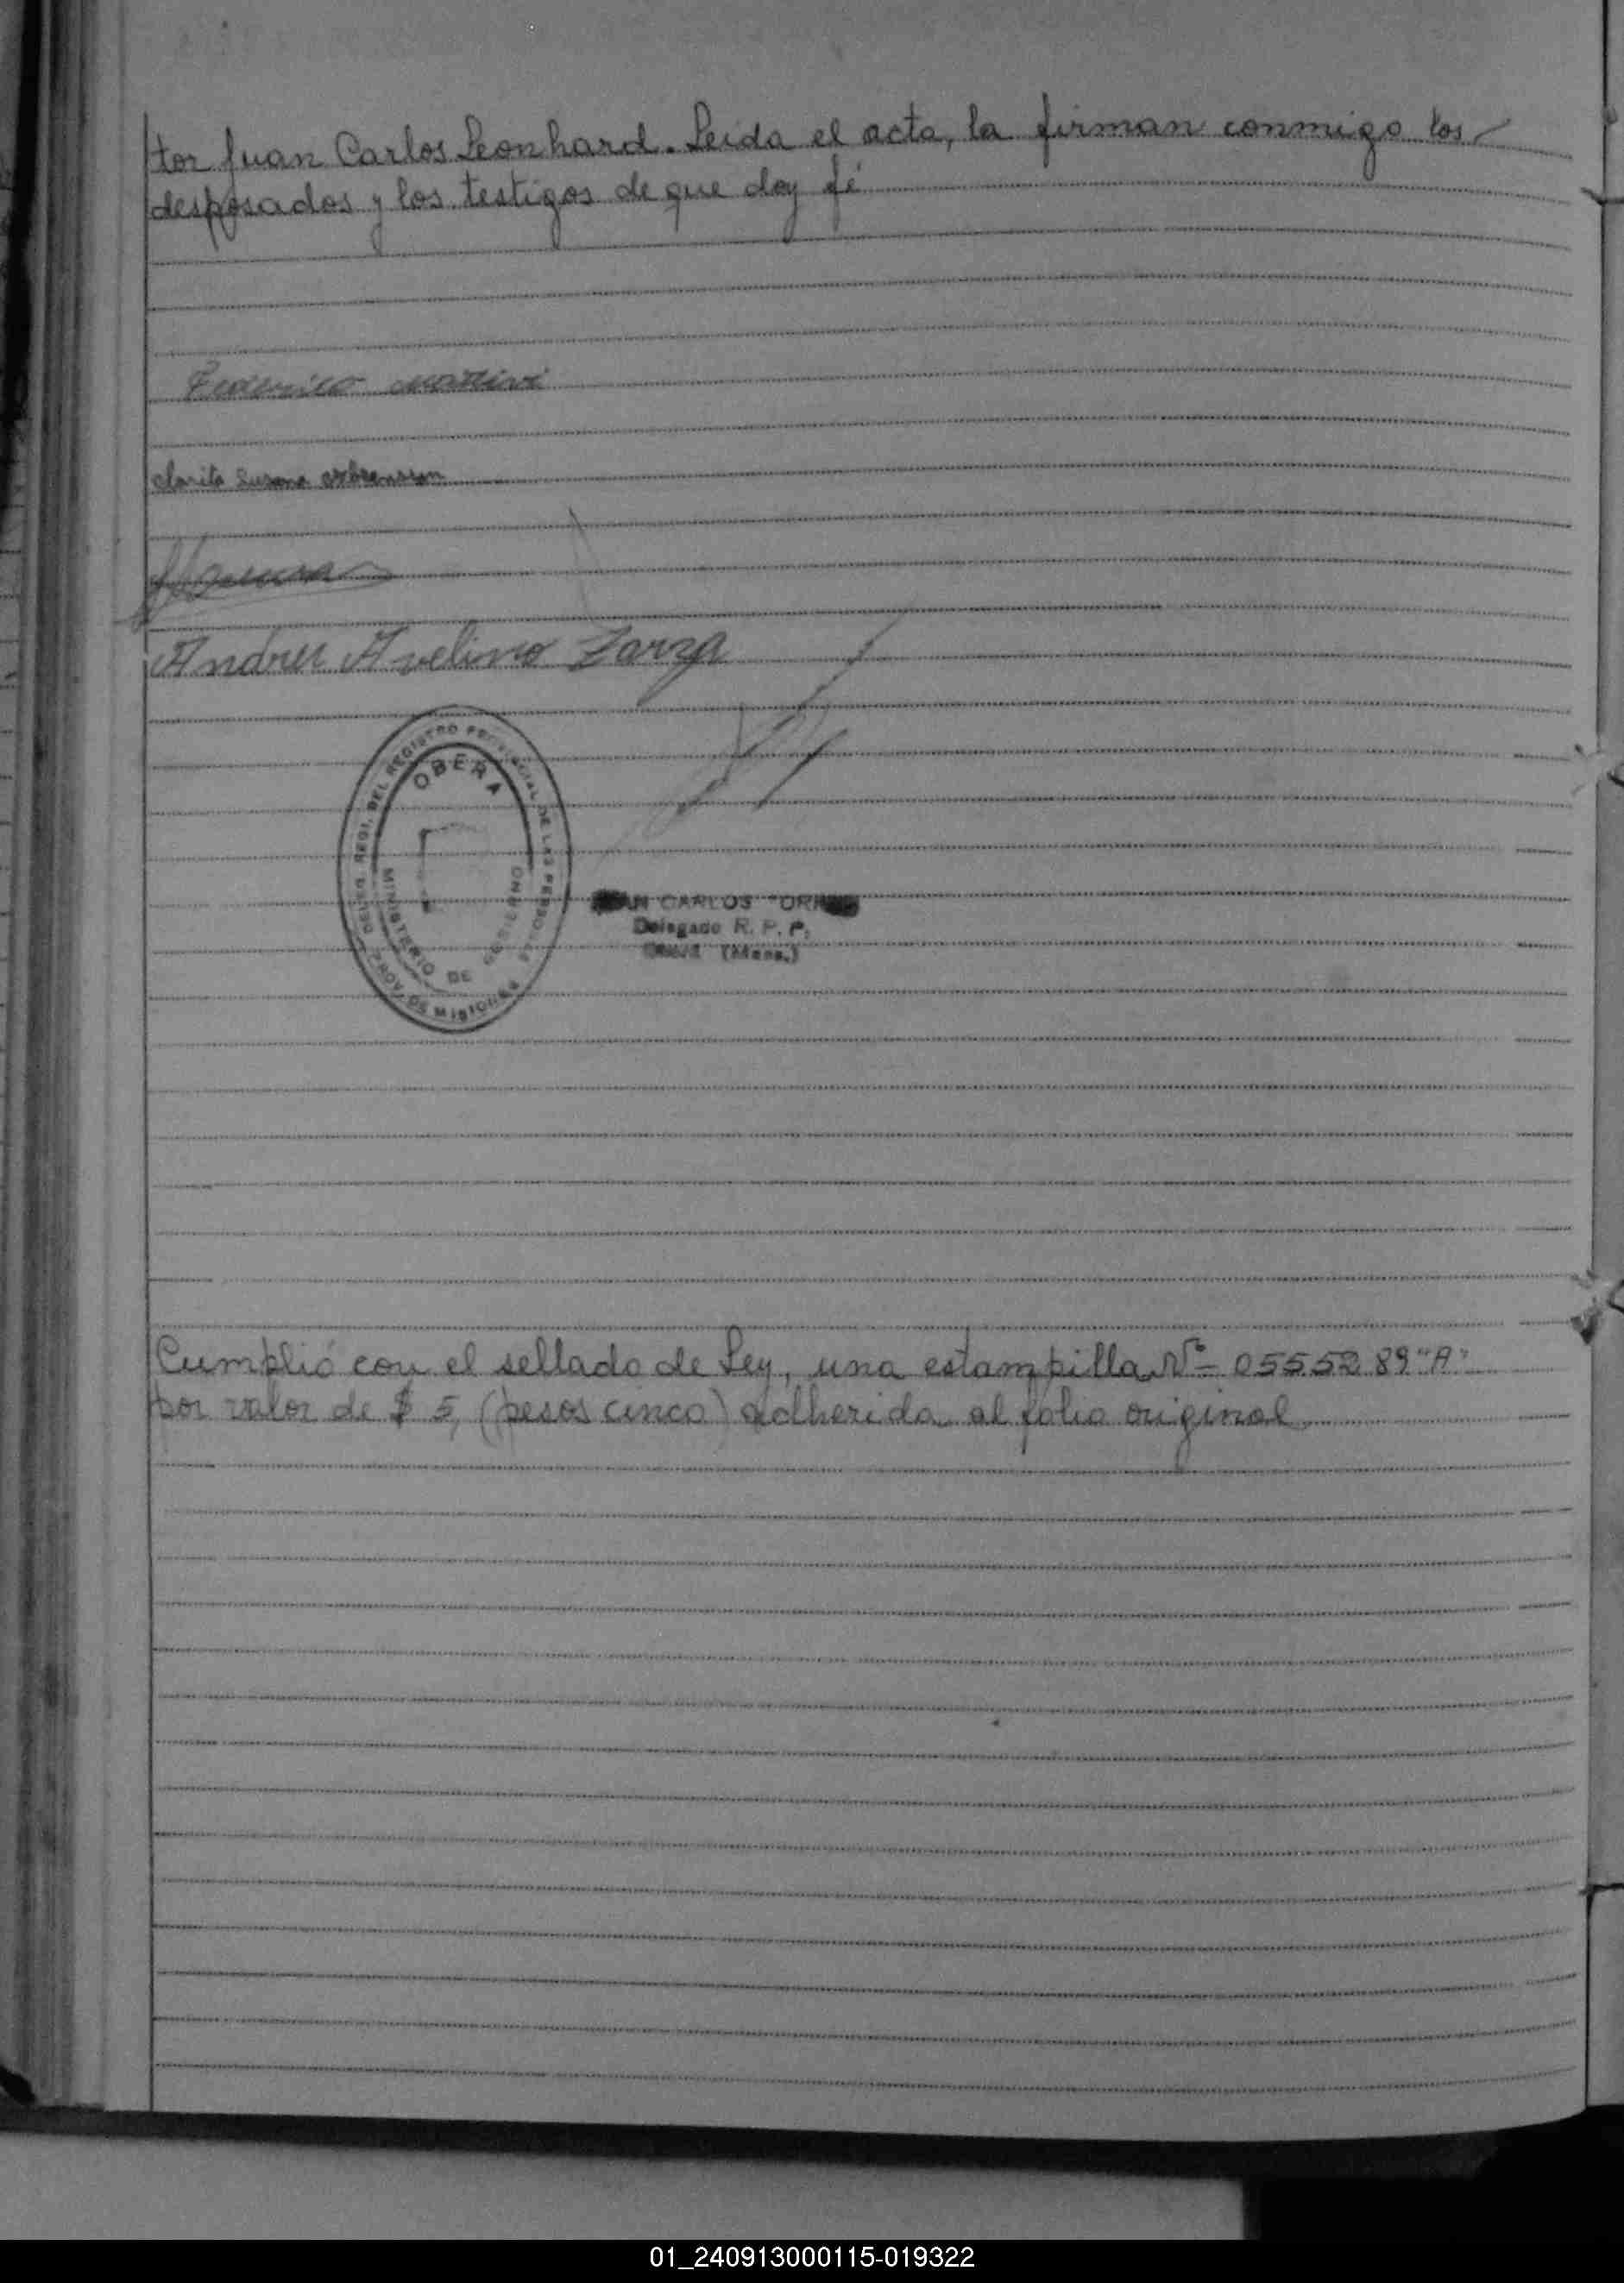 tor Juan Carlos Leonhard. Leida el acta, la firman conmigo los
desposados y los testigos de que doy fé
Federico
Clarita Susana
Andres Avelino Zarza
DEL REGISTRO PROVINCIAL DE LAS PERSONAS
OBERA
MINISTERIO DE GOBIERNO
PROV. DE MISIONES
CARLOS
Delegado R. P. P.
(Mnes.)
Cumplió con el sellado de Ley, una estampilla Nº 0555289 "A"
por valor de $ 5, (pesos cinco) adherida al folio original
01_240913000115-019322